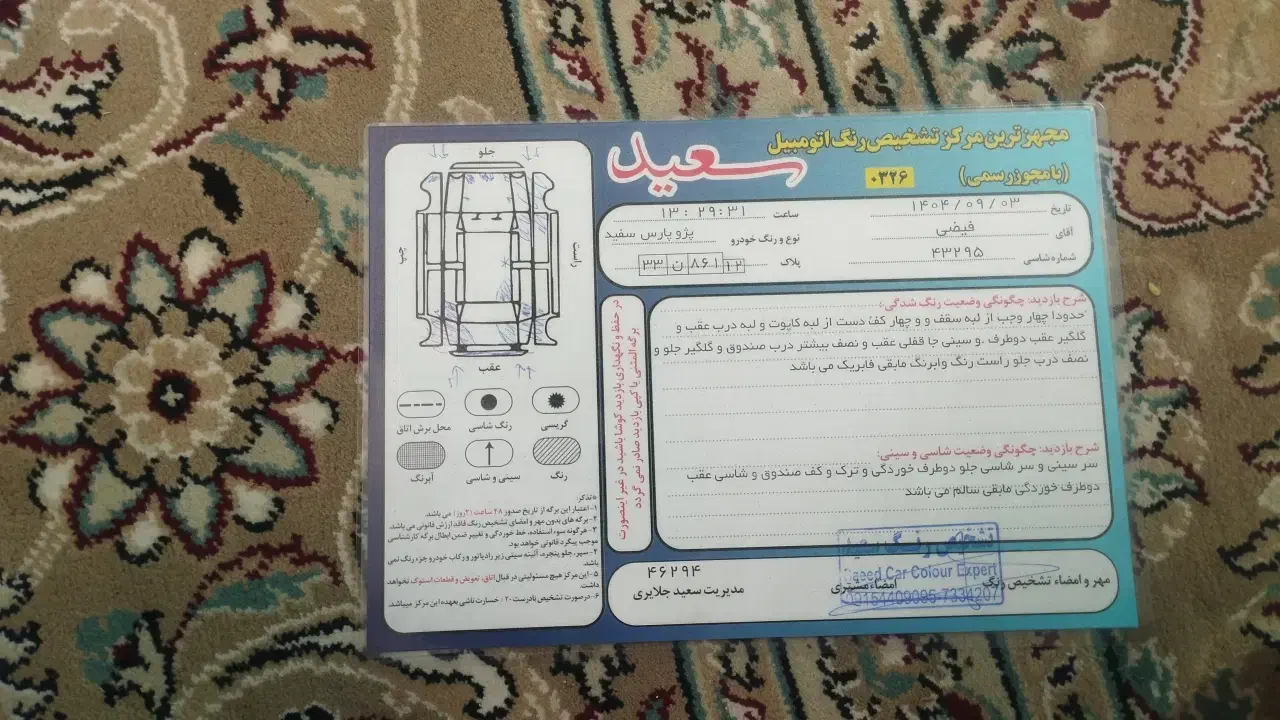 مجهزترین مرکز تشخیص رنگ اتومبیل
سعید
((بامجوز رسمی))
۰۳۲۶
تاریخ ۱۴۰۴/۰۹/۰۳
ساعت ۱۳:۲۹:۳۱
آقای فیضی
نوع و رنگ خودرو پژو پارس سفید
شماره شاسی ۴۳۲۹۵
پلاک ۱۲ ۸۶۱ ن ۳۳
شرح بازدید: چگونگی وضعیت رنگ شدگی:
حدودا چهار وجب از لبه سقف و و چهار کف دست از لبه کاپوت و لبه درب عقب و
گلگیر عقب دوطرف .و سینی جا قفلی عقب و نصف بیشتر درب صندوق و گلگیر جلو و
نصف درب جلو راست رنگ وابرنگ مابقی فابریک می باشد
شرح بازدید: چگونگی وضعیت شاسی و سینی:
سر سینی و سر شاسی جلو دوطرف خوردگی و ترک و کف صندوق و شاسی عقب
دوطرف خوردگی مابقی سالم می باشد
در حفظ و نگهداری بازدید کوشا باشید در غیر اینصورت
برگه المثنی یا کپی بازدید صادر نمی گردد
جلو
راست
چپ
عقب
گریسی
رنگ شاسی
محل برش اتاق
رنگ
سینی و شاسی
آبرنگ
*تذکر:
۱- اعتبار این برگه از تاریخ صدور ۴۸ ساعت (۲روز) می باشد.
۲- برگه های بدون مهر و امضای تشخیص رنگ فاقد ارزش قانونی می باشد.
۳- هرگونه سوء استفاده، خط خوردگی و تغییر ضمن ابطال برگه کارشناسی
موجب پیگرد قانونی خواهد بود.
۴- سپر، جلو پنجره، آئینه سینی زیر رادیاتور و رکاب خودرو جزء رنگ نمی
باشد.
۵- این مرکز هیچ مسئولیتی در قبال اتاق، تعویض و قطعات استوک نخواهد
داشت.
۶- در صورت تشخیص نادرست ۲۰٪ خسارت ناشی بعهده این مرکز میباشد.
مهر و امضاء تشخیص رنگ
امضاء مشتری
۴۶۲۹۴
مدیریت سعید جلایری
تشخیص رنگ سعید
Saeed Car Colour Expert